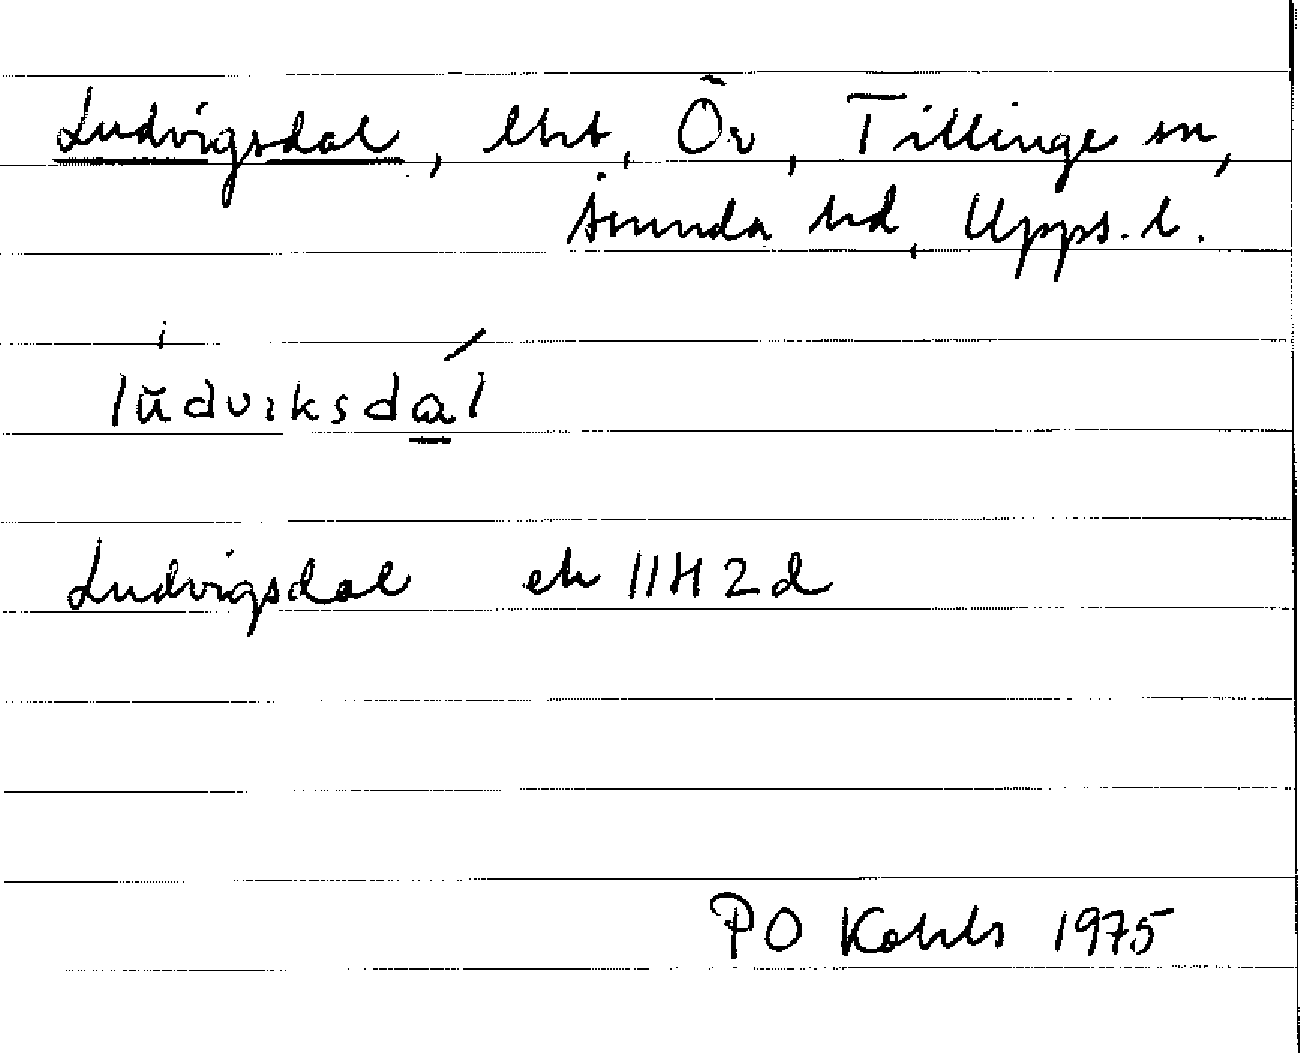 Ludvigsdal, lht, Ör, Tillinge sn,
Åsunda hd, Upps. l.
lŭdvıksdál
Ludvigsdal ek 11H2d
PO Kohls 1975